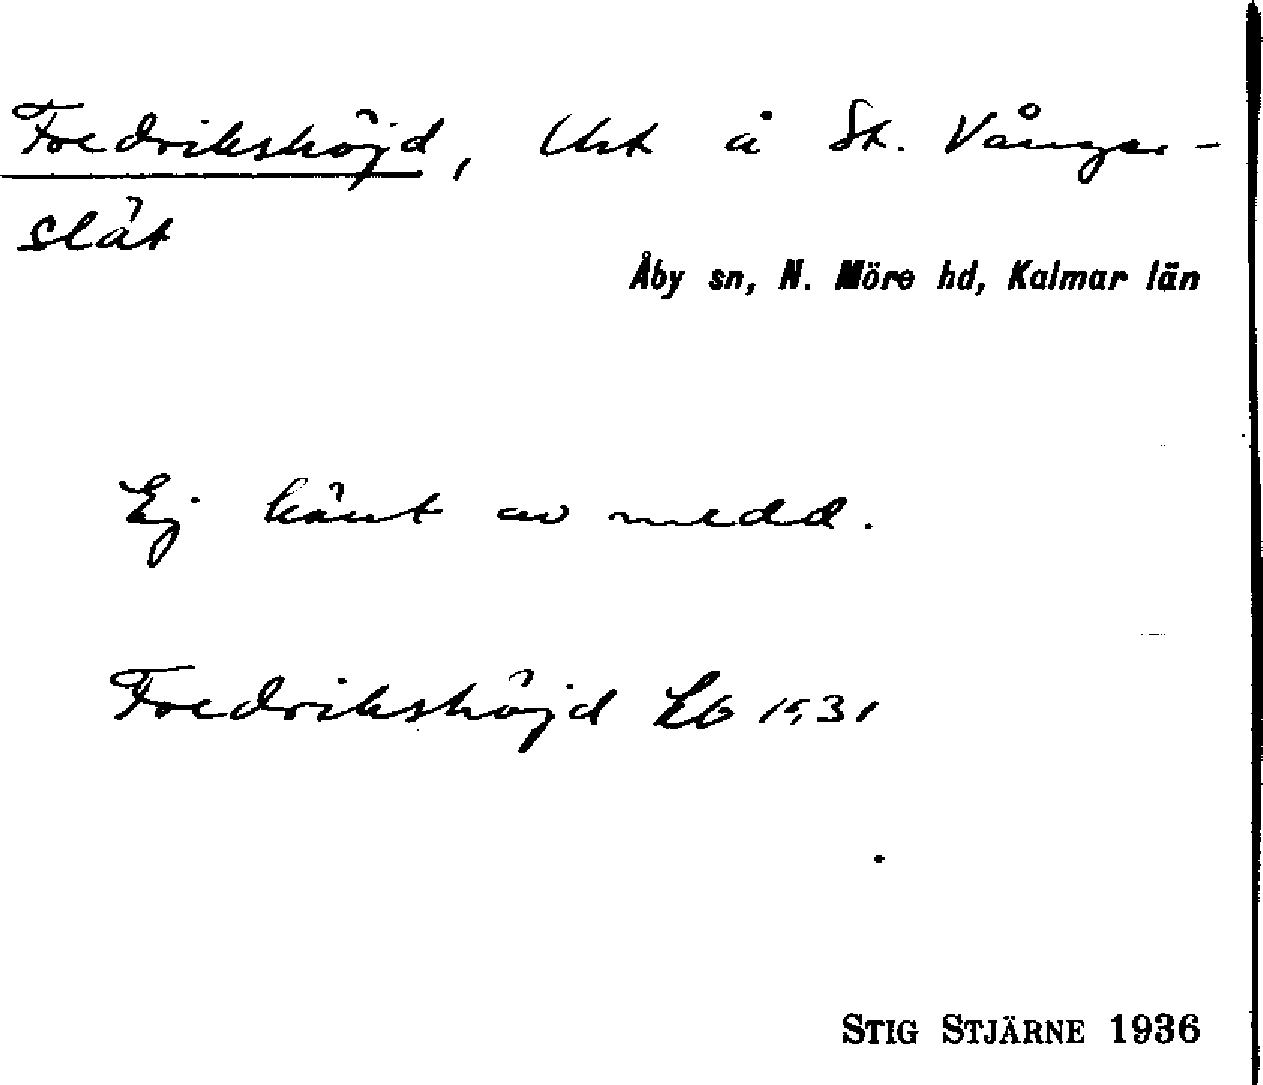 Fredrikshöjd, Ust å St. Vånger-
slät
Åby sn, N. Möre hd, Kalmar län
Ej känt av medd.
Fredrikshöjd Lb 1931
STIG STJÄRNE 1936